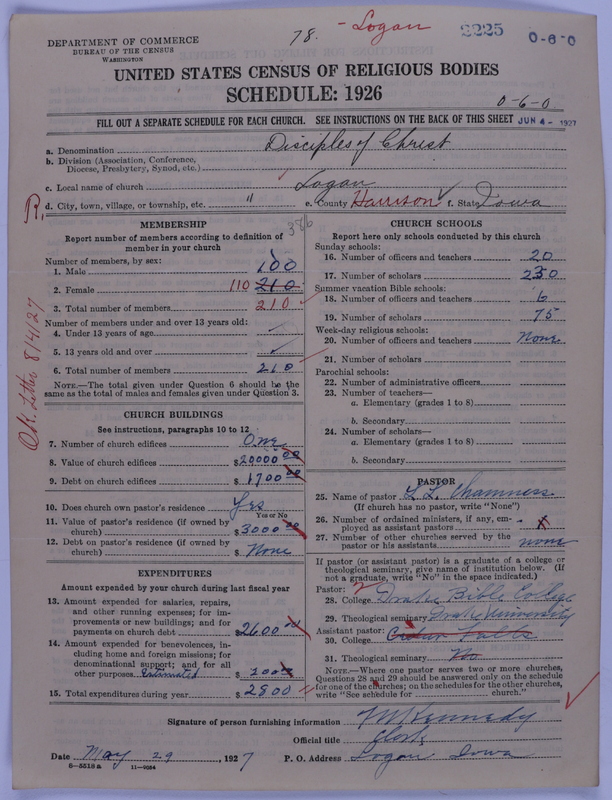 78. - Logan 2225 0-6-0
DEPARTMENT OF COMMERCE
BUREAU OF THE CENSUS
WASHINGTON
UNITED STATES CENSUS OF RELIGIOUS BODIES
SCHEDULE: 1926
0-6-0
FILL OUT A SEPARATE SCHEDULE FOR EACH CHURCH. SEE INSTRUCTIONS ON THE BACK OF THIS SHEET JUN 4 - 1927
a. Denomination Disciples of Christ
b. Division (Association, Conference,
Diocese, Presbytery, Synod, etc.)
c. Local name of church Logan
d. City, town, village, or township, etc. " e. County Harrison f. State Iowa
R.
O.K. Letter 8/4/27
MEMBERSHIP
Report number of members according to definition of
member in your church
Number of members, by sex:
1. Male 100
2. Female 110 210
3. Total number of members 210
Number of members under and over 13 years old:
4. Under 13 years of age
5. 13 years old and over
6. Total number of members 210
NOTE.—The total given under Question 6 should be the
same as the total of males and females given under Question 3.
CHURCH BUILDINGS
See instructions, paragraphs 10 to 12
7. Number of church edifices One
8. Value of church edifices $20000 00
9. Debt on church edifices $1700 00
10. Does church own pastor's residence Yes
Yes or No
11. Value of pastor's residence (if owned by
church) $3000 00
12. Debt on pastor's residence (if owned by
church) $ None
EXPENDITURES
Amount expended by your church during last fiscal year
13. Amount expended for salaries, repairs,
and other running expenses; for im-
provements or new buildings; and for
payments on church debt $2600
14. Amount expended for benevolences, in-
cluding home and foreign missions; for
denominational support; and for all
other purposes Estimated $200
15. Total expenditures during year $2800
CHURCH SCHOOLS
Report here only schools conducted by this church
Sunday schools:
16. Number of officers and teachers 20
17. Number of scholars 230
Summer vacation Bible schools:
18. Number of officers and teachers 6
19. Number of scholars 75
Week-day religious schools:
20. Number of officers and teachers None
21. Number of scholars
Parochial schools:
22. Number of administrative officers
23. Number of teachers—
a. Elementary (grades 1 to 8)
b. Secondary
24. Number of scholars—
a. Elementary (grades 1 to 8)
b. Secondary
PASTOR
25. Name of pastor L L Chamness
(If church has no pastor, write "None")
26. Number of ordained ministers, if any, em-
ployed as assistant pastors
27. Number of other churches served by the
pastor or his assistants none
If pastor (or assistant pastor) is a graduate of a college or
theological seminary, give name of institution below. (If
not a graduate, write "No" in the space indicated.)
Pastor:
28. College Drake Bible College
29. Theological seminary Drake University
Assistant pastor:
30. College Falls
31. Theological seminary No
NOTE.—Where one pastor serves two or more churches,
Questions 28 and 29 should be answered only on the schedule
for one of the churches; on the schedules for the other churches,
write "See schedule for church."
Signature of person furnishing information M Kennedy
Official title Clerk
Date May 29, 1927 P. O. Address Logan Iowa
8—5518a 11—9064